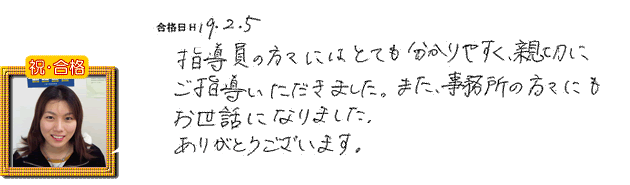 合格日H19.2.5
祝・合格
指導員の方々にはとても分かりやすく、親切に
ご指導いただきました。また、事務所の方々にも
お世話になりました.
ありがとうございます。